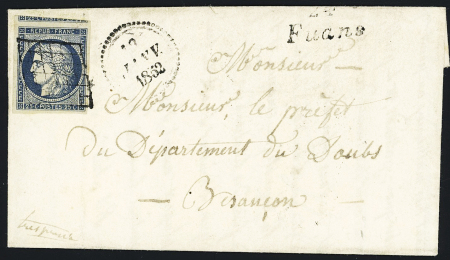 REPUB. FRANC.
25 CENTES 25 C
JANV.
1852
24
Fuans
Monsieur
Monsieur, le préfet
du Département du Doubs
Besançon